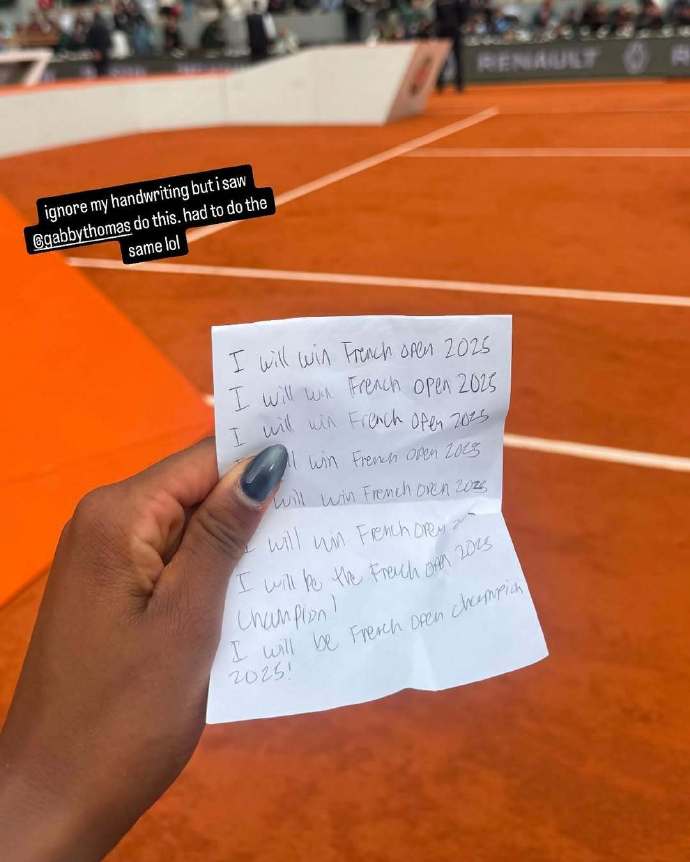 RENAULT
ignore my handwriting but i saw
@gabbythomas do this. had to do the
same lol
I will win French open 2025
I will win French open 2025
I will win French open 2025
will win French open 2025
will win French open 2025
I will win French open 2025
I will be the French open 2025
Champion!
I will be French open champion
2025!